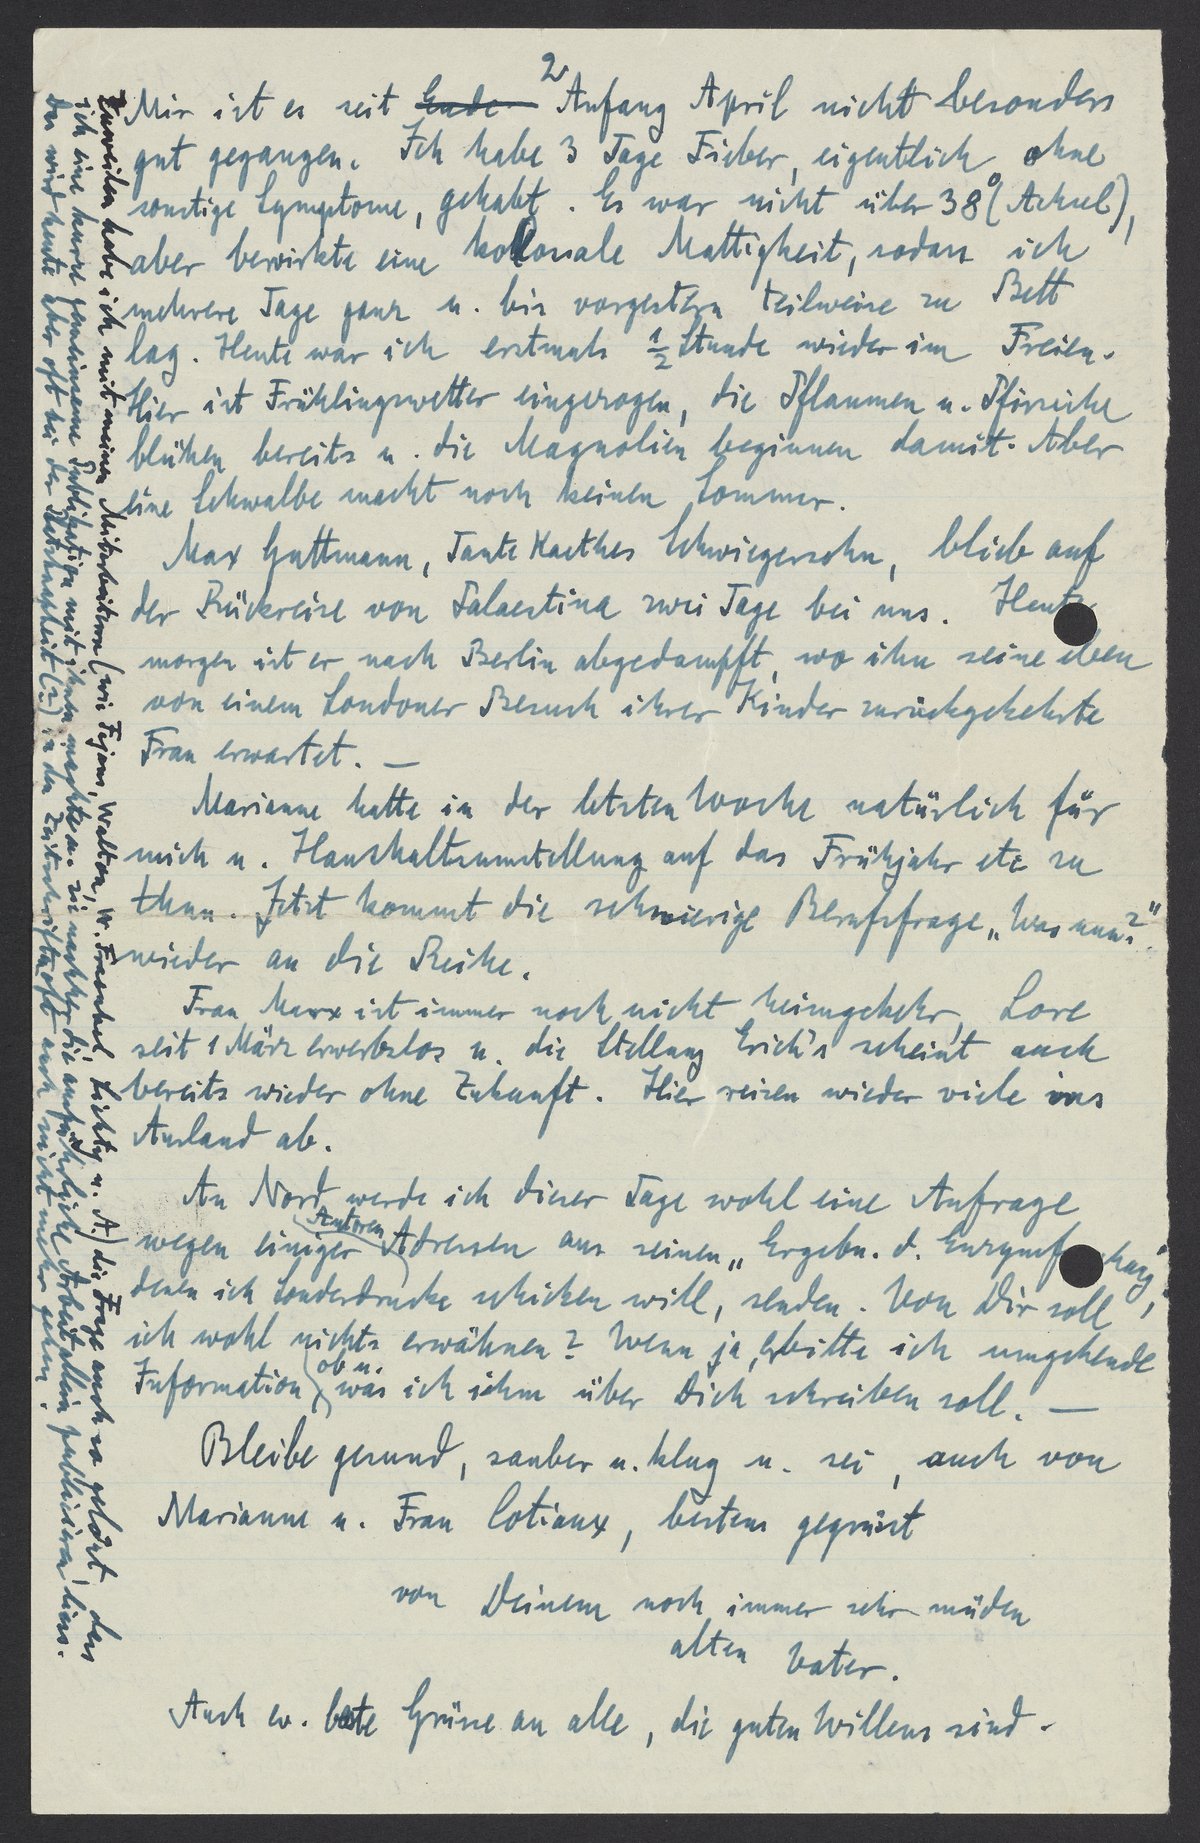 2
Mir ist es seit Ende Anfang April nicht besonders
gut gegangen. Ich habe 3 Tage Fieber, eigentlich ohne
sonstige Symptome, gehabt. Es war nicht über 38° (Achsel),
aber bewirkte eine kolossale Mattigkeit, sodass ich
mehrere Tage ganz u. bis vorgestern teilweise zu Bett
lag. Heute war ich erstmals ½ Stunde wieder im Freien.
Hier ist Frühlingswetter eingezogen, die Pflaumen u. Pfirsiche
blühen bereits u. die Magnolien beginnen damit. Aber
eine Schwalbe macht noch keinen Sommer.
Max Guttmann, Tante Kaethes Schwiegersohn, blieb auf
der Rückreise von Palaestina zwei Tage bei uns. Heute
morgen ist er nach Berlin abgedampft, wo ihn seine eben
von einem Londoner Besuch ihrer Kinder zurückgekehrte
Frau erwartet. —
Marianne hatte in der letzten Woche natürlich für
mich u. Haushaltsumstellung auf das Frühjahr etc zu
thun. Jetzt kommt die schwierige Berufsfrage „Was nun?"
wieder an die Reihe.
Frau Marx ist immer noch nicht heimgekehr, Lore
seit 1 März erwerbslos u. die Stellung Erich's scheint auch
bereits wieder ohne Zukunft. Hier reisen wieder viele ins
Ausland ab.
An Nord werde ich dieser Tage wohl eine Anfrage
wegen einiger Autoren Adressen aus seinen „Ergebn. d. Enzymf hung",
denen ich Sonderdrucke schicken will, senden. Von Dir soll
ich wohl nichts erwähnen? Wenn ja, erbitte ich umgehende
Information, ob u. was ich ihm über Dich schreiben soll. —
Bleibe gesund, sauber u. klug u. sei, auch von
Marianne u. Frau Cotiaux, bestens gegrüsst
von Deinem noch immer sehr müden
alten Vater.
Auch ev. beste Grüsse an alle, die guten Willens sind.
Zuweilen habe ich mit meinen Mitarbeitern (wie Fejens, Walton, W. Fraenkel, Lichty u. A.) die Frage auch so gelöst, dass
ich eine kurze gemeinsame Publikation mit ihnen machte u. sie nachher die ausführliche Arbeit allein publicieren liess.
Das wird heute aber oft bei der (?) in den Zeitschriften oft auch nicht mehr gehen.